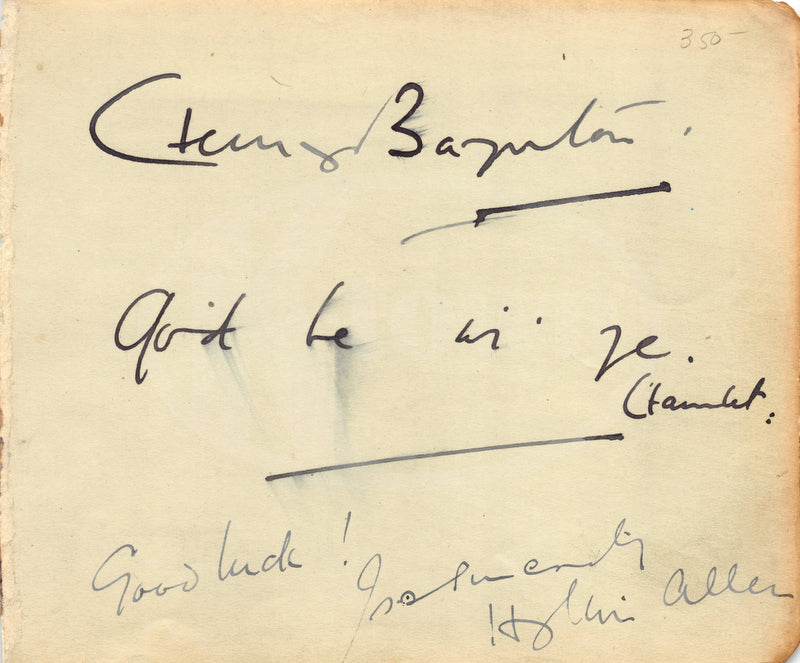 350-
Henry Baynton.
God be wi' ye.
(Hamlet.
Good luck!
Yrs sincerely
Allen